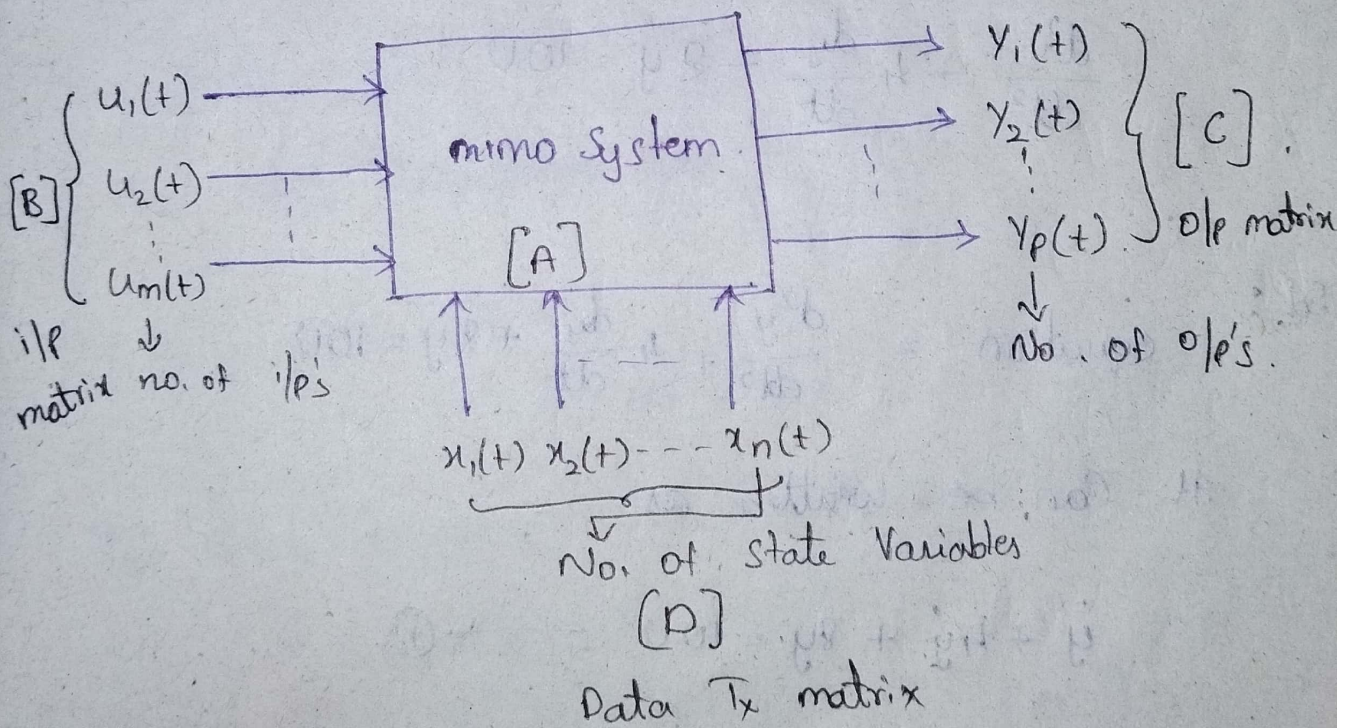 u₁(t)
[B]
u₂(t)
um(t)
i/p
matrix no. of i/p's
mimo System.
[A]
Y₁(t)
Y₂(t)
Yp(t).
[C].
o/p matrix
No. of o/p's.
x₁(t) x₂(t)---xn(t)
No. of state Variables
[D]
Data Tx matrix